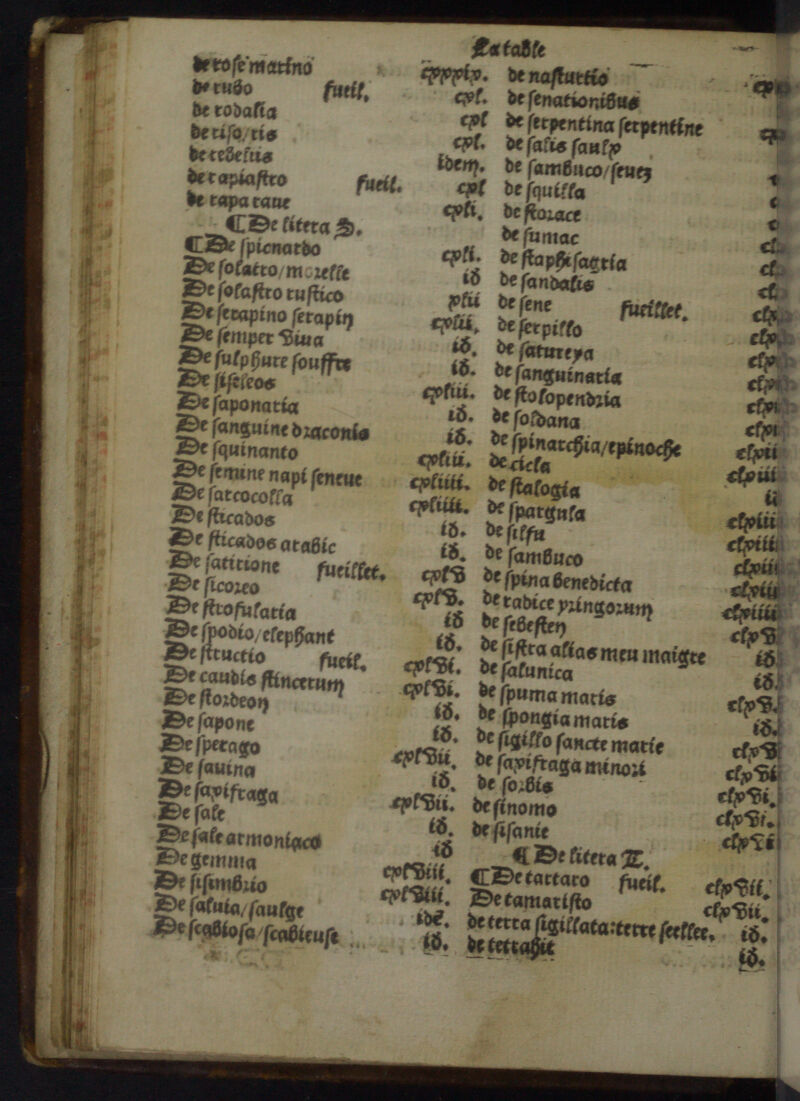 La table
de rose marino cxxxix.
de rubo fueil. cxl.
de rodalia cxl
de riso/ris cxl.
de rebelus idem.
de rapiastro fueil. cxl
de rapa raue cxli.
¶De litera S.
¶De spicnardo cxli.
De solatro/morelle id
De solastro rustico xlii
De serapino serapin cxlii.
De semper viua id.
De sulphure souffre id.
De siseleos cxliii.
De saponaria id.
De sanguine draconis id.
De squinanto cxliii.
De semine napi seneue cxliiii.
De sarcocolla cxliiii.
De sticados id.
De sticados arabic id.
De satirione fueillet. cxlv
De sicoreo cxlv.
De strofularia id
De spodio/elephant id.
De structio fueil. cxlvi.
De caudis stincerum cxlvi.
De stordeon id.
De sapone id.
De sperago cxlvii.
De sauina id.
De saxifraga cxlvii.
De sale id.
De sale armoniaco id
De gemma cxlviii.
De sisimbrio cxlviii.
De saluia/saulge ide.
De scabiosa/scabieuse id.
de nasturtio
de senationibus
de serpentina serpentine
de salis saulx
de sambuco/seuez
de squilla
de storace
de sumac
de staphisagria
de sandalis
de sene fueillet.
de serpillo
de satureya
de sanguinaria
de stolopendria
de soldana
de spinarchia/epinoche clxii
de cicla clxiii
de stalogia ii
de spargula clxiii
de silfu clxiii
de sambuco clxiii
de spina benedicta clxiii
de radice yringorum clxiiii
de sebesten clxv
de sistra alias meu maigre id.
de salunica id.
de spuma maris clxv.
de spongia maris id.
de sigillo sancte marie clxv
de saxifraga minori clxvi
de sorbis clxvi.
de sinomo clxvi.
de sisanie clxvi
¶De litera T.
¶De tartaro fueil. clxvii.
De tamaristo clxvii.
de terra sigillata:terre seellee. id.
de tetrahit id.